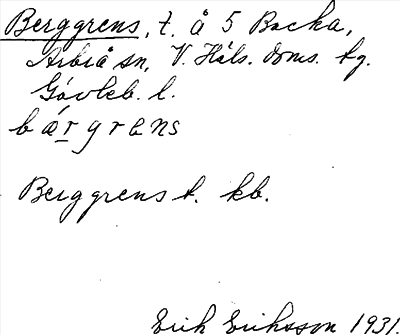 Berggrens, t. å 5 Backa,
Arbrå sn, V. Häls. doms. tg.
Gävleb. l.
bærgrens
Berggrens t. kb.
Erik Eriksson 1931.